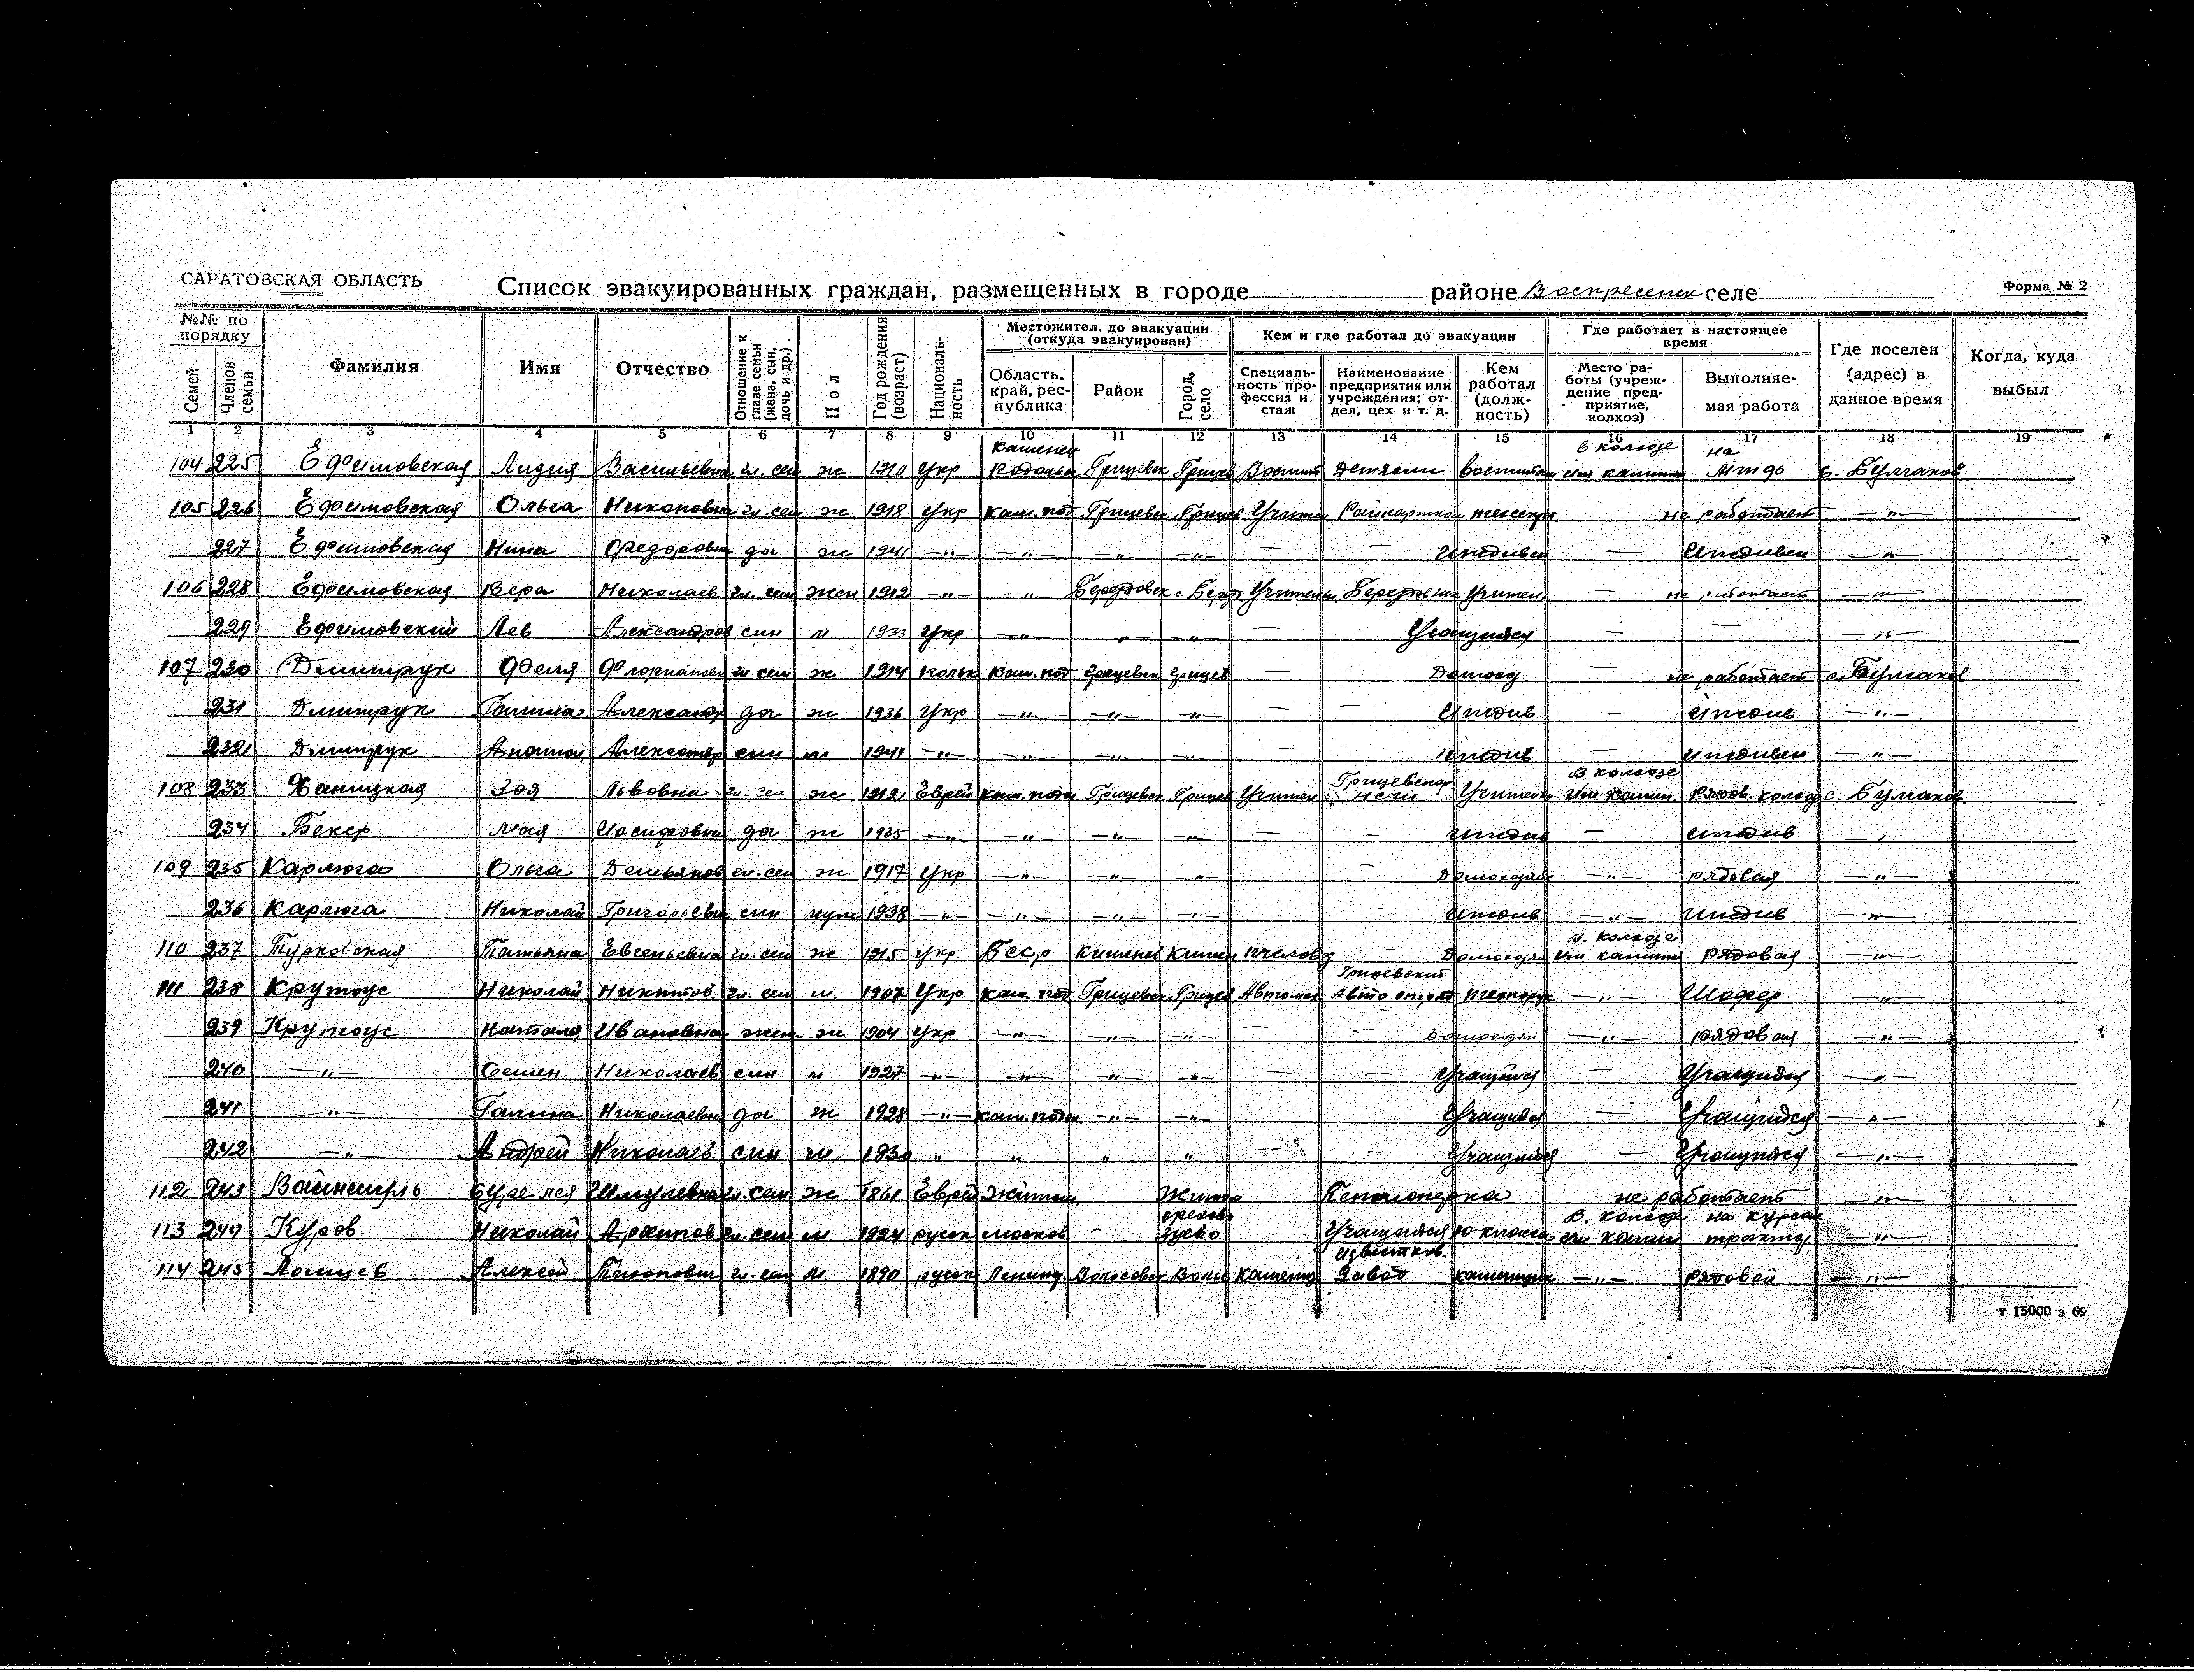 САРАТОВСКАЯ ОБЛАСТЬ
Список эвакуированных граждан, размещенных в городе районе Воскресенск селе
Форма № 2
№№ по порядку Фамилия Имя Отчество Отношение к главе семьи (жена, сын, дочь и др.) Пол Год рождения (возраст) Националь-ность Местожител. до эвакуации (откуда эвакуирован) Кем и где работал до эвакуации Где работает в настоящее время Где поселен (адрес) в данное время Когда, куда выбыл
Семей Членов семьи Область. край, рес-публика Район Город, село Специаль-ность про-фессия и стаж Наименование предприятия или учреждения; от-дел, цех и т. д. Кем работал (долж-ность) Место ра-боты (учреж-дение пред-приятие, колхоз) Выполняе-мая работа
1 2 3 4 5 6 7 8 9 10 11 12 13 14 15 16 17 18 19
104 225 Ефимовская Лидия Васильевна гл. сем ж 1910 Укр Каменец Подольс Грицевск Грицев Воспит Детясли воспитат в колхозе им калинин на МТФ с. Булгаков
105 226 Ефимовская Ольга Никоновна гл. сем ж 1918 Укр Кам. под Грицевск Грицев Учител не работает — „ —
227 Ефимовская Нина Федоровн дч ж 1941 — „ — — „ — — „ — — „ — — иждивен — иждивен — „ —
106 228 Ефимовская Вера Николаев. гл. сем жен 1912 — „ — „ Учительн Учител — не работает — „ —
229 Ефимовский Лев Александров син м 1933 Укр — „ — — „ — — „ — — Учащийся — — — „ —
107 230 Дмитрук Аделя Флориановн гл сем ж 1914 польк Кам. под Грицевск Грицев — Домохоз — не работает с. Булгаков
231 Дмитрук Галина Александр дч ж 1936 Укр — „ — — „ — — „ — — — Иждив — Иждив — „ —
232 Дмитрук Анатол Александр син м 1941 — „ — — „ — — „ — — — иждив — иждивен — „ —
108 233 Ханицкая Зоя Львовна гл. сем ж 1912 Еврей Кам. подол Грицевск Грицев Учител Грицевская Учитель в колхозе им калин. рядов. колхоз с. Булгаков
234 Бекер Мая Иосифовна дч ж 1935 — „ — — „ — — „ — — „ — — — иждив — иждив —
109 235 Карлюга Ольга Демьянов гл. сем ж 1917 Укр — „ — — „ — — „ — — Домохозяйк — „ — рядовая — „ —
236 Карлюга Николай Григорьевич син муж 1938 — „ — — „ — — „ — — „ — Иждив — „ — Иждив — „ —
110 237 Турковская Татьяна Евгеньевна гл. сем ж 1915 укр. Кишенев Кишен пчеловод — Домохозя в. колхозе им калинин рядовая — „ —
111 238 Крутоус Николай Никитов. гл. сем м. 1907 Укр Кам. под Грицевск Грицев Автомех Грицевский Шофер — „ —
239 Крутоус Наталя Ивановна жен ж 1904 Укр — „ — — „ — — „ — — — домохозяй — „ — рядовая — „ —
240 — „ — Семен Николаев син м 1927 — „ — — „ — — „ — — „ — — — Учащийся — Учащийся — „ —
241 — „ — Галина Николаевн дч ж 1928 — „ — кам. подол — „ — — „ — Учащийся — Учащийся — „ —
242 — „ — Андрей Николаев син м. 1930 „ „ „ „ — — Учащийся — Учащийся — „ —
112 243 Вайнширль Шмулевна гл. сем ж 1861 Еврей Житом Житом Пенсионерка не работает — „ —
113 244 Куров Николай Архипов гл. сем м 1924 русск москов. — орехово зуево Учащийся 10 класса в. колхозе им калин на курсах трактор — „ —
114 245 Логицев Алексей гл. сем М 1890 русск Ленинг Волосовск Воло Каменщ известков. завод каменщик — „ — рядовой — „ —
т 15000 з 69